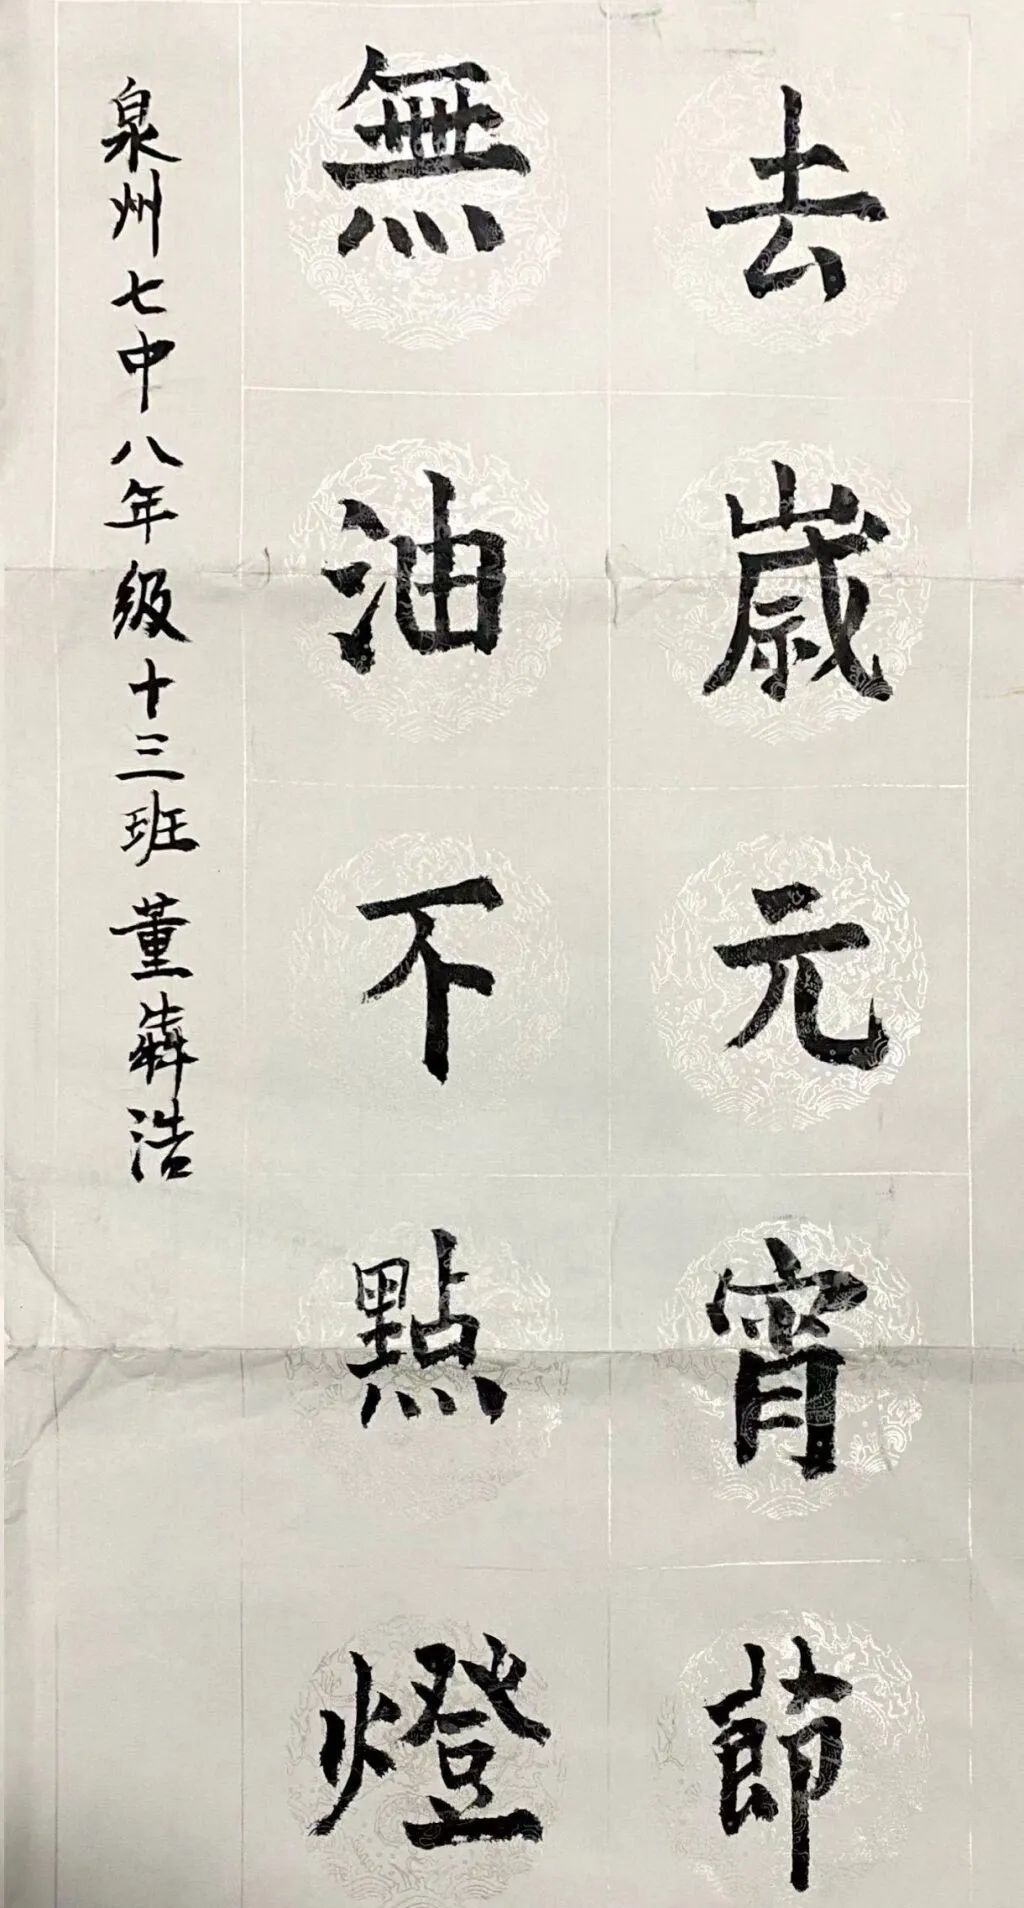 去歳元宵節
無油不點燈
泉州七中八年级十三班董犇浩